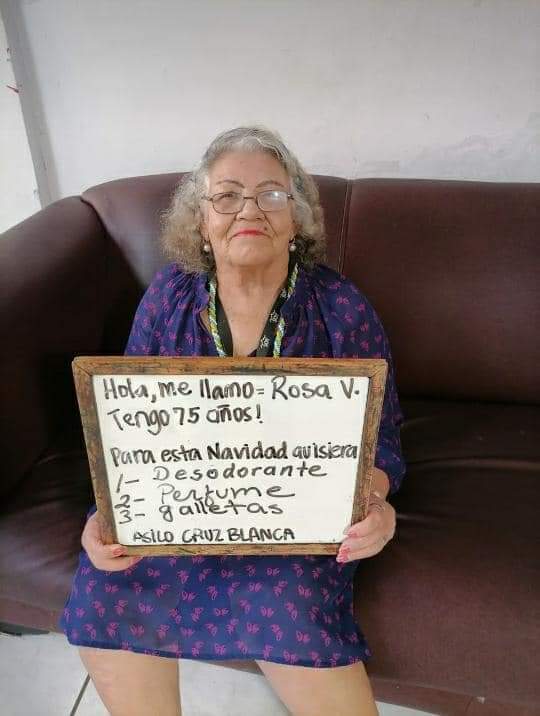 Hola, me llamo= Rosa V.
Tengo 75 años!
Para esta Navidad quisiera
1- Desodorante
2- Perfume
3- galletas
ASILO CRUZ BLANCA